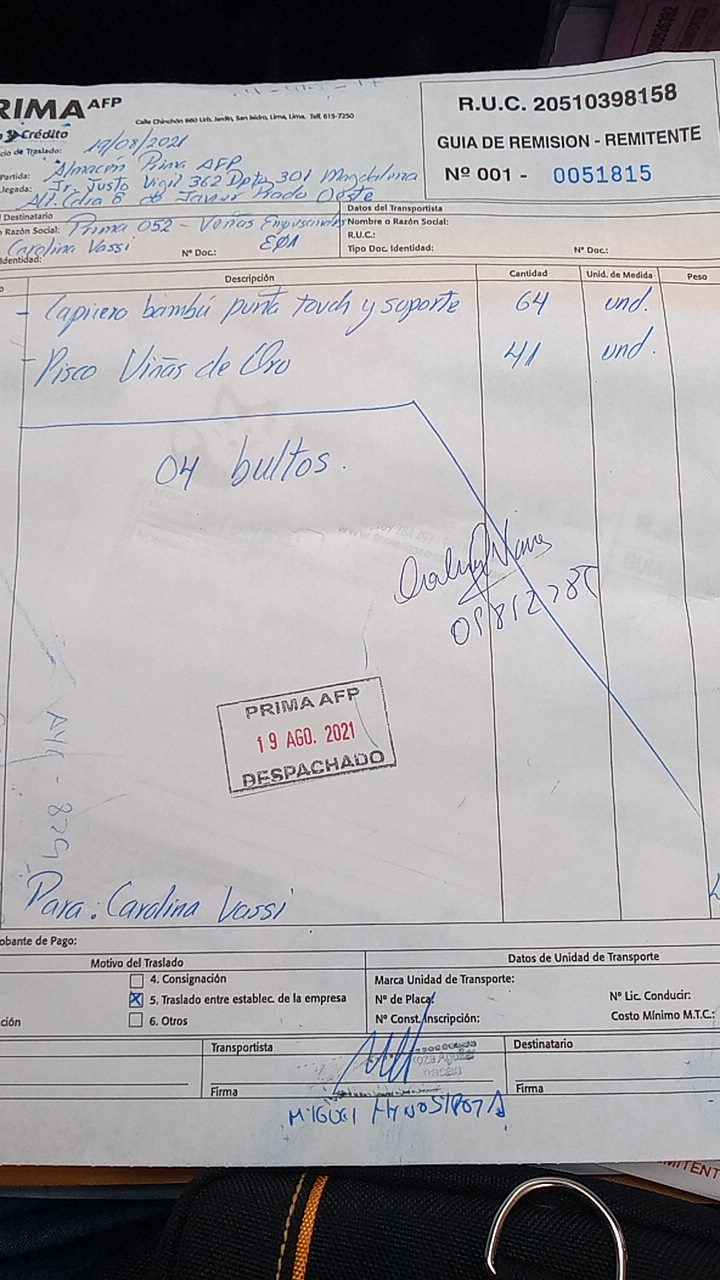 RIMA AFP
Crédito
Calle Chinchón 980 Urb. Jardín, San Isidro, Lima, Lima. Telf. 615-7250
R.U.C. 20510398158
GUIA DE REMISION - REMITENTE
Nº 001 - 0051815
cio de Traslado: 19/08/2021
Partida: Almacén Prima AFP
legada: Jr. Justo Vigil 362 Dpto 301 Magdalena
Alt. Cdra 8 de Javier Prado Oeste
Destinatario
Razón Social: Prima 052 - Ventas
Carolina Vassi
Identidad:
Nº Doc.:
Datos del Transportista
Nombre o Razón Social:
R.U.C.:
Tipo Doc. Identidad:
Nº Doc.:
Descripción
Cantidad
Unid. de Medida
Peso
- Lapicero bambú punta touch y soporte 64 und.
- Pisco Viñas de Oro 41 und.
04 bultos.
PRIMA AFP
19 AGO. 2021
DESPACHADO
Para: Carolina Vassi
obante de Pago:
Motivo del Traslado
4. Consignación
5. Traslado entre establec. de la empresa
6. Otros
ción
Datos de Unidad de Transporte
Marca Unidad de Transporte:
Nº de Placa:
Nº Lic. Conducir:
Nº Const. Inscripción:
Costo Mínimo M.T.C.:
Transportista
Firma
Destinatario
Firma
MIGUEL